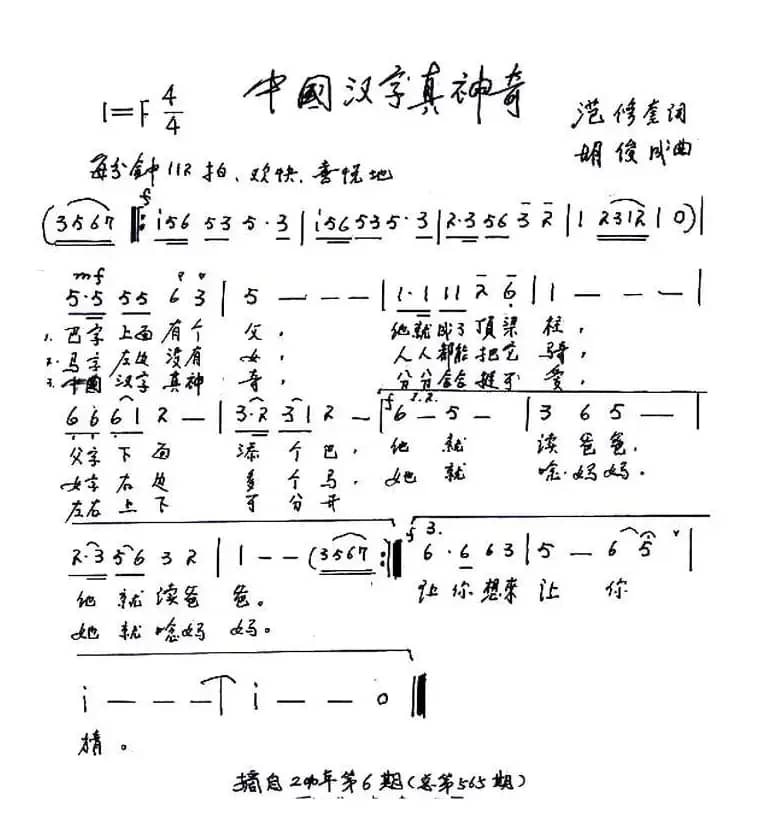 中國汉字真神奇
1=F 4/4
范修奎词
胡俊成曲
每分钟112拍、欢快、喜悦地
f
(3567 ‖: i56 53 5·3 | i56 53 5·3 | 2·3 56 3 2 | 1 2312 1 0) |
mf
5·5 55 6 3 | 5 — — — | 1·1 11 2 6 | 1 — — — |
1. 巴字上面有个父, 他就成了頂梁柱,
2. 马字左边没有女, 人人都能把它骑,
3. 中國汉字真神奇, 分分合合挺可爱,
f 1.2.
6 6 6 1 2 — | 3·2 3 1 2 — | 6 — 5 — | 3 6 5 — |
父字下面添个巴, 他就读爸爸,
女字右边多个马, 她就唸妈妈.
左右上下可分开
f 3.
2·3 5 6 3 2 | 1 — — (3567 :‖ 6 · 6 6 3 | 5 — 6 5 |
他就读爸爸。 让你想来让你
她就唸妈妈。
i — — — | i — — 0 ‖
猜。
摘自200年第6期(总第565期)